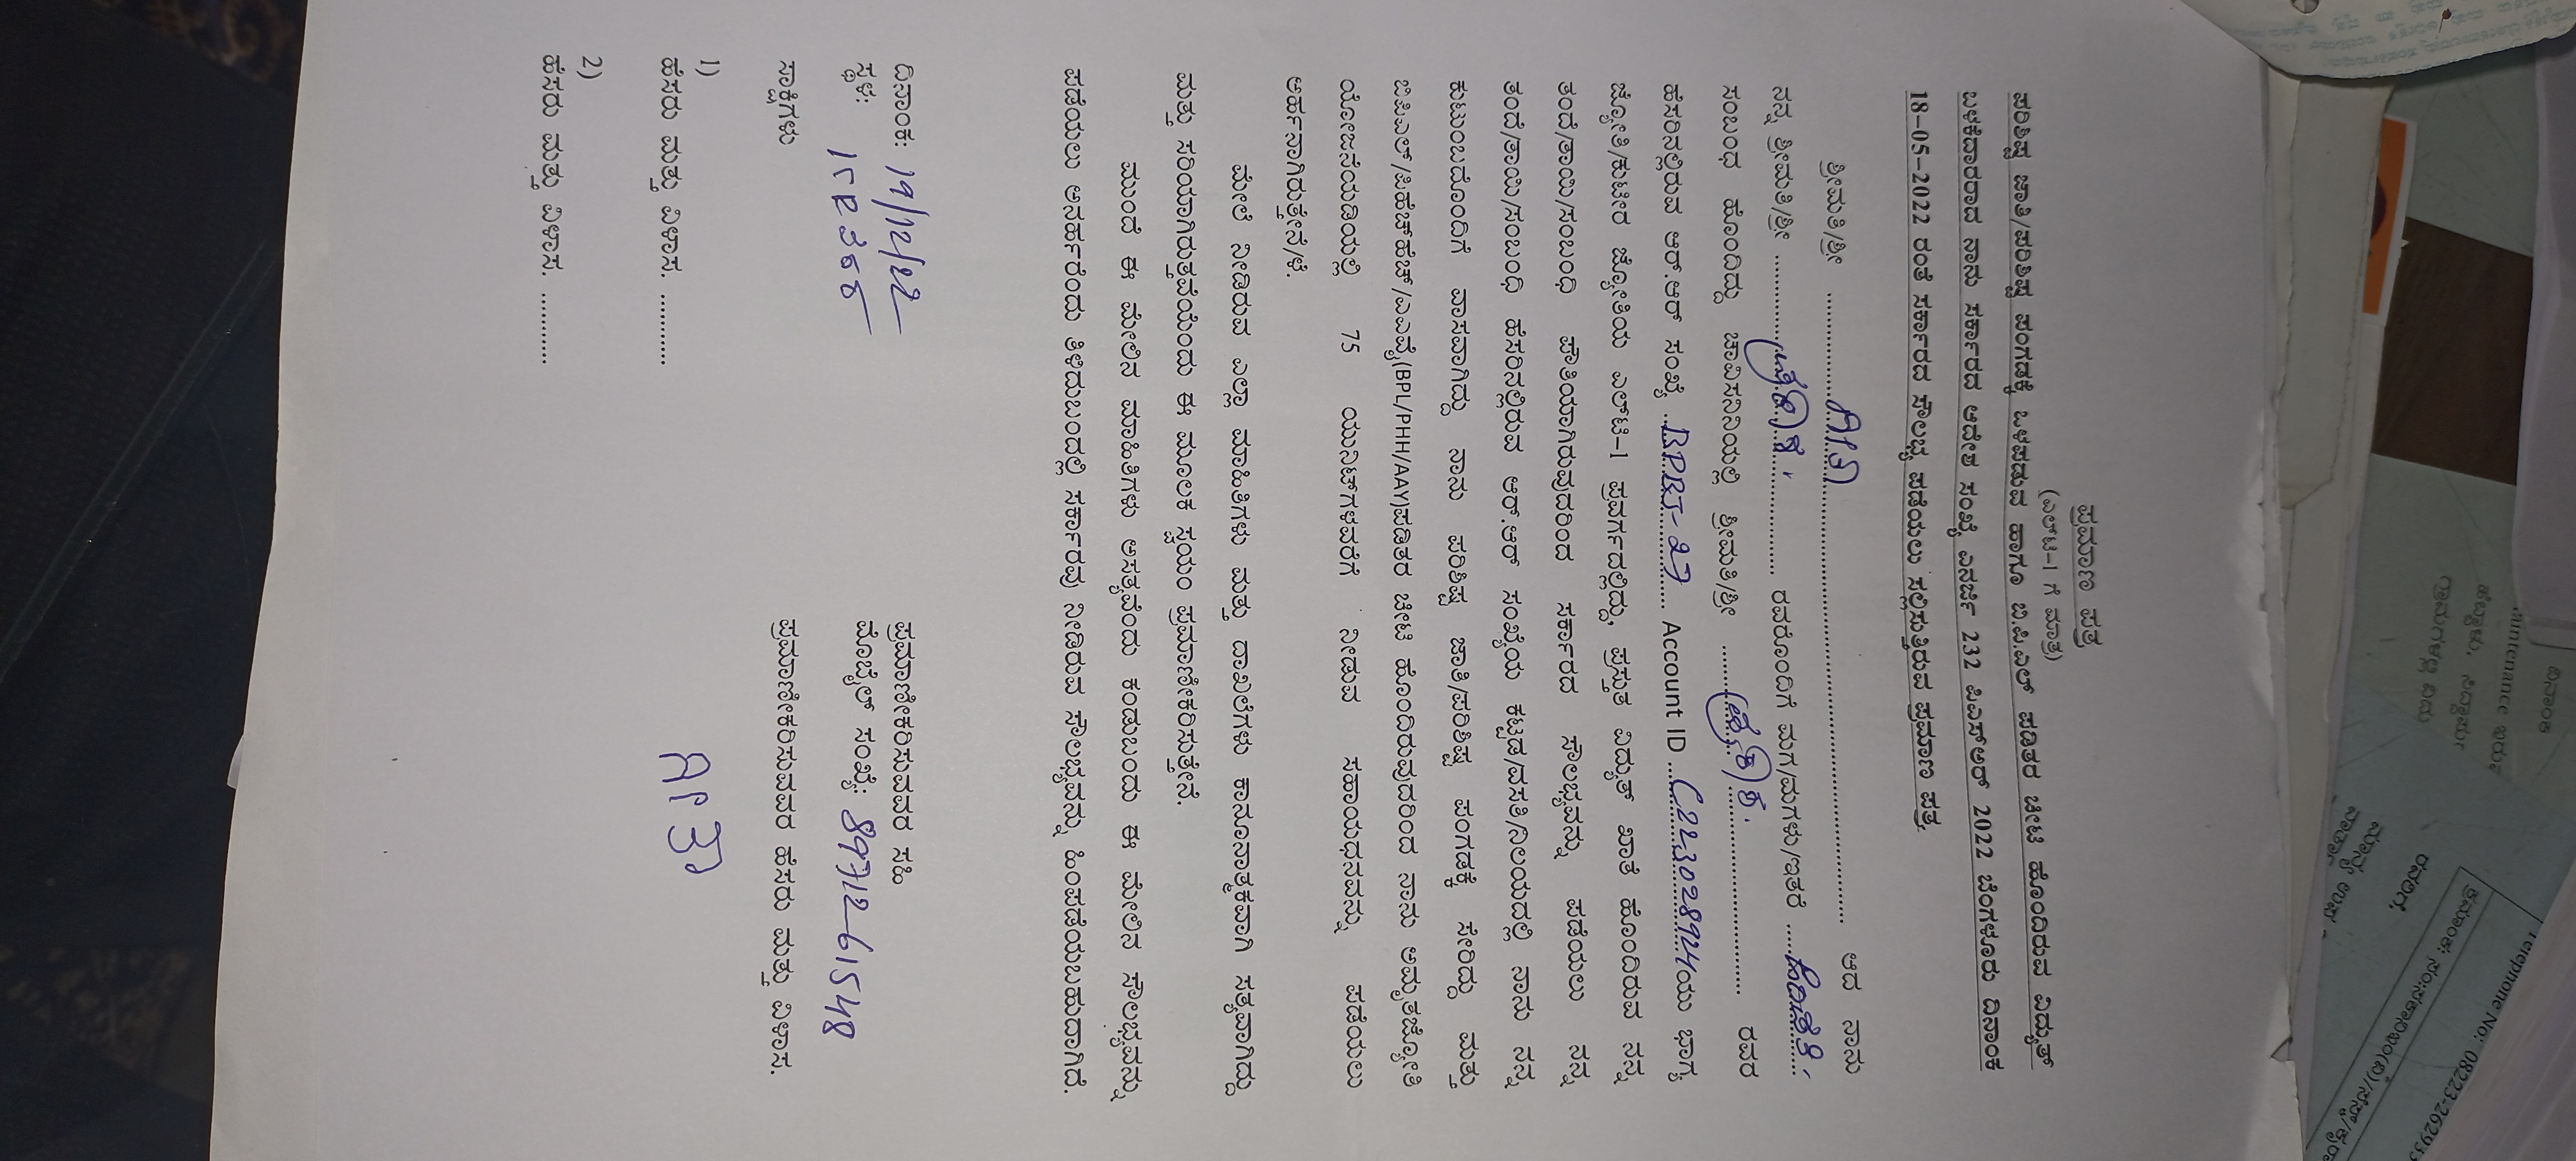 ಪ್ರಮಾಣ ಪತ್ರ
(ಎಲ್‌ಟಿ-1 ಗೆ ಮಾತ್ರ)
ಪರಿಶಿಷ್ಟ ಜಾತಿ/ಪರಿಶಿಷ್ಟ ಪಂಗಡಕ್ಕೆ ಒಳಪಡುವ ಹಾಗೂ ಬಿ.ಪಿ.ಎಲ್ ಪಡಿತರ ಚೀಟಿ ಹೊಂದಿರುವ ವಿದ್ಯುತ್
ಬಳಕೆದಾರರಾದ ನಾನು ಸರ್ಕಾರದ ಆದೇಶ ಸಂಖ್ಯೆ ಎನರ್ಜಿ 232 ಪಿಎಸ್‌ಆರ್ 2022 ಬೆಂಗಳೂರು ದಿನಾಂಕ
18-05-2022 ರಂತೆ ಸರ್ಕಾರದ ಸೌಲಭ್ಯ ಪಡೆಯಲು ಸಲ್ಲಿಸುತ್ತಿರುವ ಪ್ರಮಾಣ ಪತ್ರ
ಶ್ರೀಮತಿ/ಶ್ರೀ ........ ಆದ ನಾನು
ನನ್ನ ಶ್ರೀಮತಿ/ಶ್ರೀ ........ ರವರೊಂದಿಗೆ ಮಗ/ಮಗಳು/ಇತರೆ ........
ಸಂಬಂಧ ಹೊಂದಿದ್ದು ಚಾವಿಸನಿನಿಯಲ್ಲಿ ಶ್ರೀಮತಿ/ಶ್ರೀ ........ ರವರ
ಹೆಸರಿನಲ್ಲಿರುವ ಆರ್.ಆರ್ ಸಂಖ್ಯೆ ..BPBJ-27.... Account ID ....C2230289244ಯು ಭಾಗ್ಯ
ಜ್ಯೋತಿ/ಕುಟೀರ ಜ್ಯೋತಿಯ ಎಲ್‌ಟಿ-1 ಪ್ರವರ್ಗದಲ್ಲಿದ್ದು, ಪ್ರಸ್ತುತ ವಿದ್ಯುತ್ ಖಾತೆ ಹೊಂದಿರುವ ನನ್ನ
ತಂದೆ/ತಾಯಿ/ಸಂಬಂಧಿ ಪೌತಿಯಾಗಿರುವುದರಿಂದ ಸರ್ಕಾರದ ಸೌಲಭ್ಯವನ್ನು ಪಡೆಯಲು ನನ್ನ
ತಂದೆ/ತಾಯಿ/ಸಂಬಂಧಿ ಹೆಸರಿನಲ್ಲಿರುವ ಆರ್.ಆರ್ ಸಂಖ್ಯೆಯ ಕಟ್ಟಡ/ವಸತಿ/ನಿಲಯದಲ್ಲಿ ನಾನು ನನ್ನ
ಕುಟುಂಬದೊಂದಿಗೆ ವಾಸವಾಗಿದ್ದು ನಾನು ಪರಿಶಿಷ್ಟ ಜಾತಿ/ಪರಿಶಿಷ್ಟ ಪಂಗಡಕ್ಕೆ ಸೇರಿದ್ದು ಮತ್ತು
ಬಿಪಿಎಲ್/ಪಿಹೆಚ್‌ಹೆಚ್/ಎಎವೈ(BPL/PHH/AAY)ಪಡಿತರ ಚೀಟಿ ಹೊಂದಿರುವುದರಿಂದ ನಾನು ಅಮೃತಜ್ಯೋತಿ
ಯೋಜನೆಯಡಿಯಲ್ಲಿ 75 ಯುನಿಟ್‌ಗಳವರೆಗೆ ನೀಡುವ ಸಹಾಯಧನವನ್ನು ಪಡೆಯಲು
ಅರ್ಹನಾಗಿರುತ್ತೇನೆ/ಳೆ.
ಮೇಲೆ ನೀಡಿರುವ ಎಲ್ಲಾ ಮಾಹಿತಿಗಳು ಮತ್ತು ದಾಖಲೆಗಳು ಕಾನೂನಾತ್ಮಕವಾಗಿ ಸತ್ಯವಾಗಿದ್ದು
ಮತ್ತು ಸರಿಯಾಗಿರುತ್ತವೆಯೆಂದು ಈ ಮೂಲಕ ಸ್ವಯಂ ಪ್ರಮಾಣೀಕರಿಸುತ್ತೇನೆ.
ಮುಂದೆ ಈ ಮೇಲಿನ ಮಾಹಿತಿಗಳು ಅಸತ್ಯವೆಂದು ಕಂಡುಬಂದು ಈ ಮೇಲಿನ ಸೌಲಭ್ಯವನ್ನು
ಪಡೆಯಲು ಅನರ್ಹರೆಂದು ತಿಳಿದುಬಂದಲ್ಲಿ ಸರ್ಕಾರವು ನೀಡಿರುವ ಸೌಲಭ್ಯವನ್ನು ಹಿಂಪಡೆಯಬಹುದಾಗಿದೆ.
ದಿನಾಂಕ: 19/12/22 ಪ್ರಮಾಣೀಕರಿಸುವವರ ಸಹಿ
ಸ್ಥಳ: ಮೊಬೈಲ್ ಸಂಖ್ಯೆ: 8971261548
ಸಾಕ್ಷಿಗಳು ಪ್ರಮಾಣೀಕರಿಸುವವರ ಹೆಸರು ಮತ್ತು ವಿಳಾಸ.
1)
ಹೆಸರು ಮತ್ತು ವಿಳಾಸ. ............
2)
ಹೆಸರು ಮತ್ತು ವಿಳಾಸ. ............
Telephone No: 08223-26293